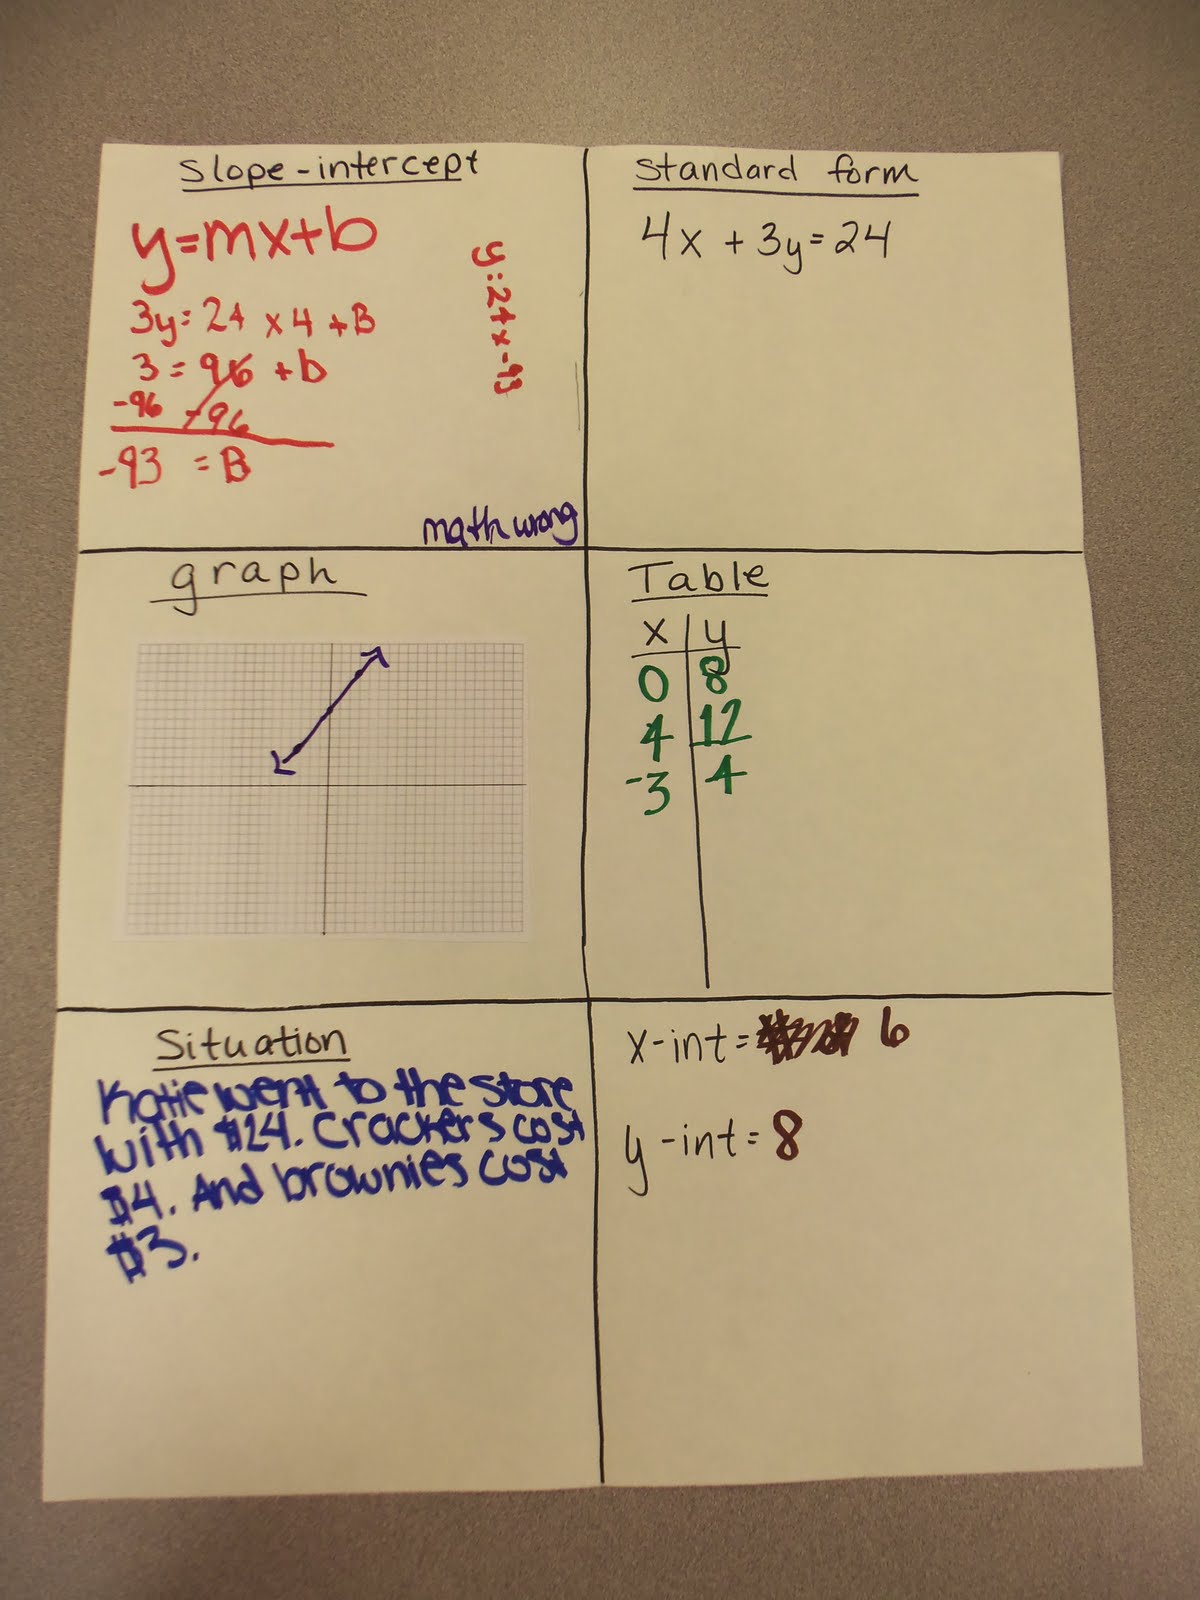 Slope-intercept
y=mx+b
3y=24 x4+B
3=96+b
-96 -96
-93 =B
y=24x-93
math wrong
Standard form
4x+3y=24
graph
Table
x y
0 8
4 12
-3 4
Situation
Katie went to the store
with $24. Crackers cost
$4. And brownies cost
$3.
x-int= 6
y-int=8